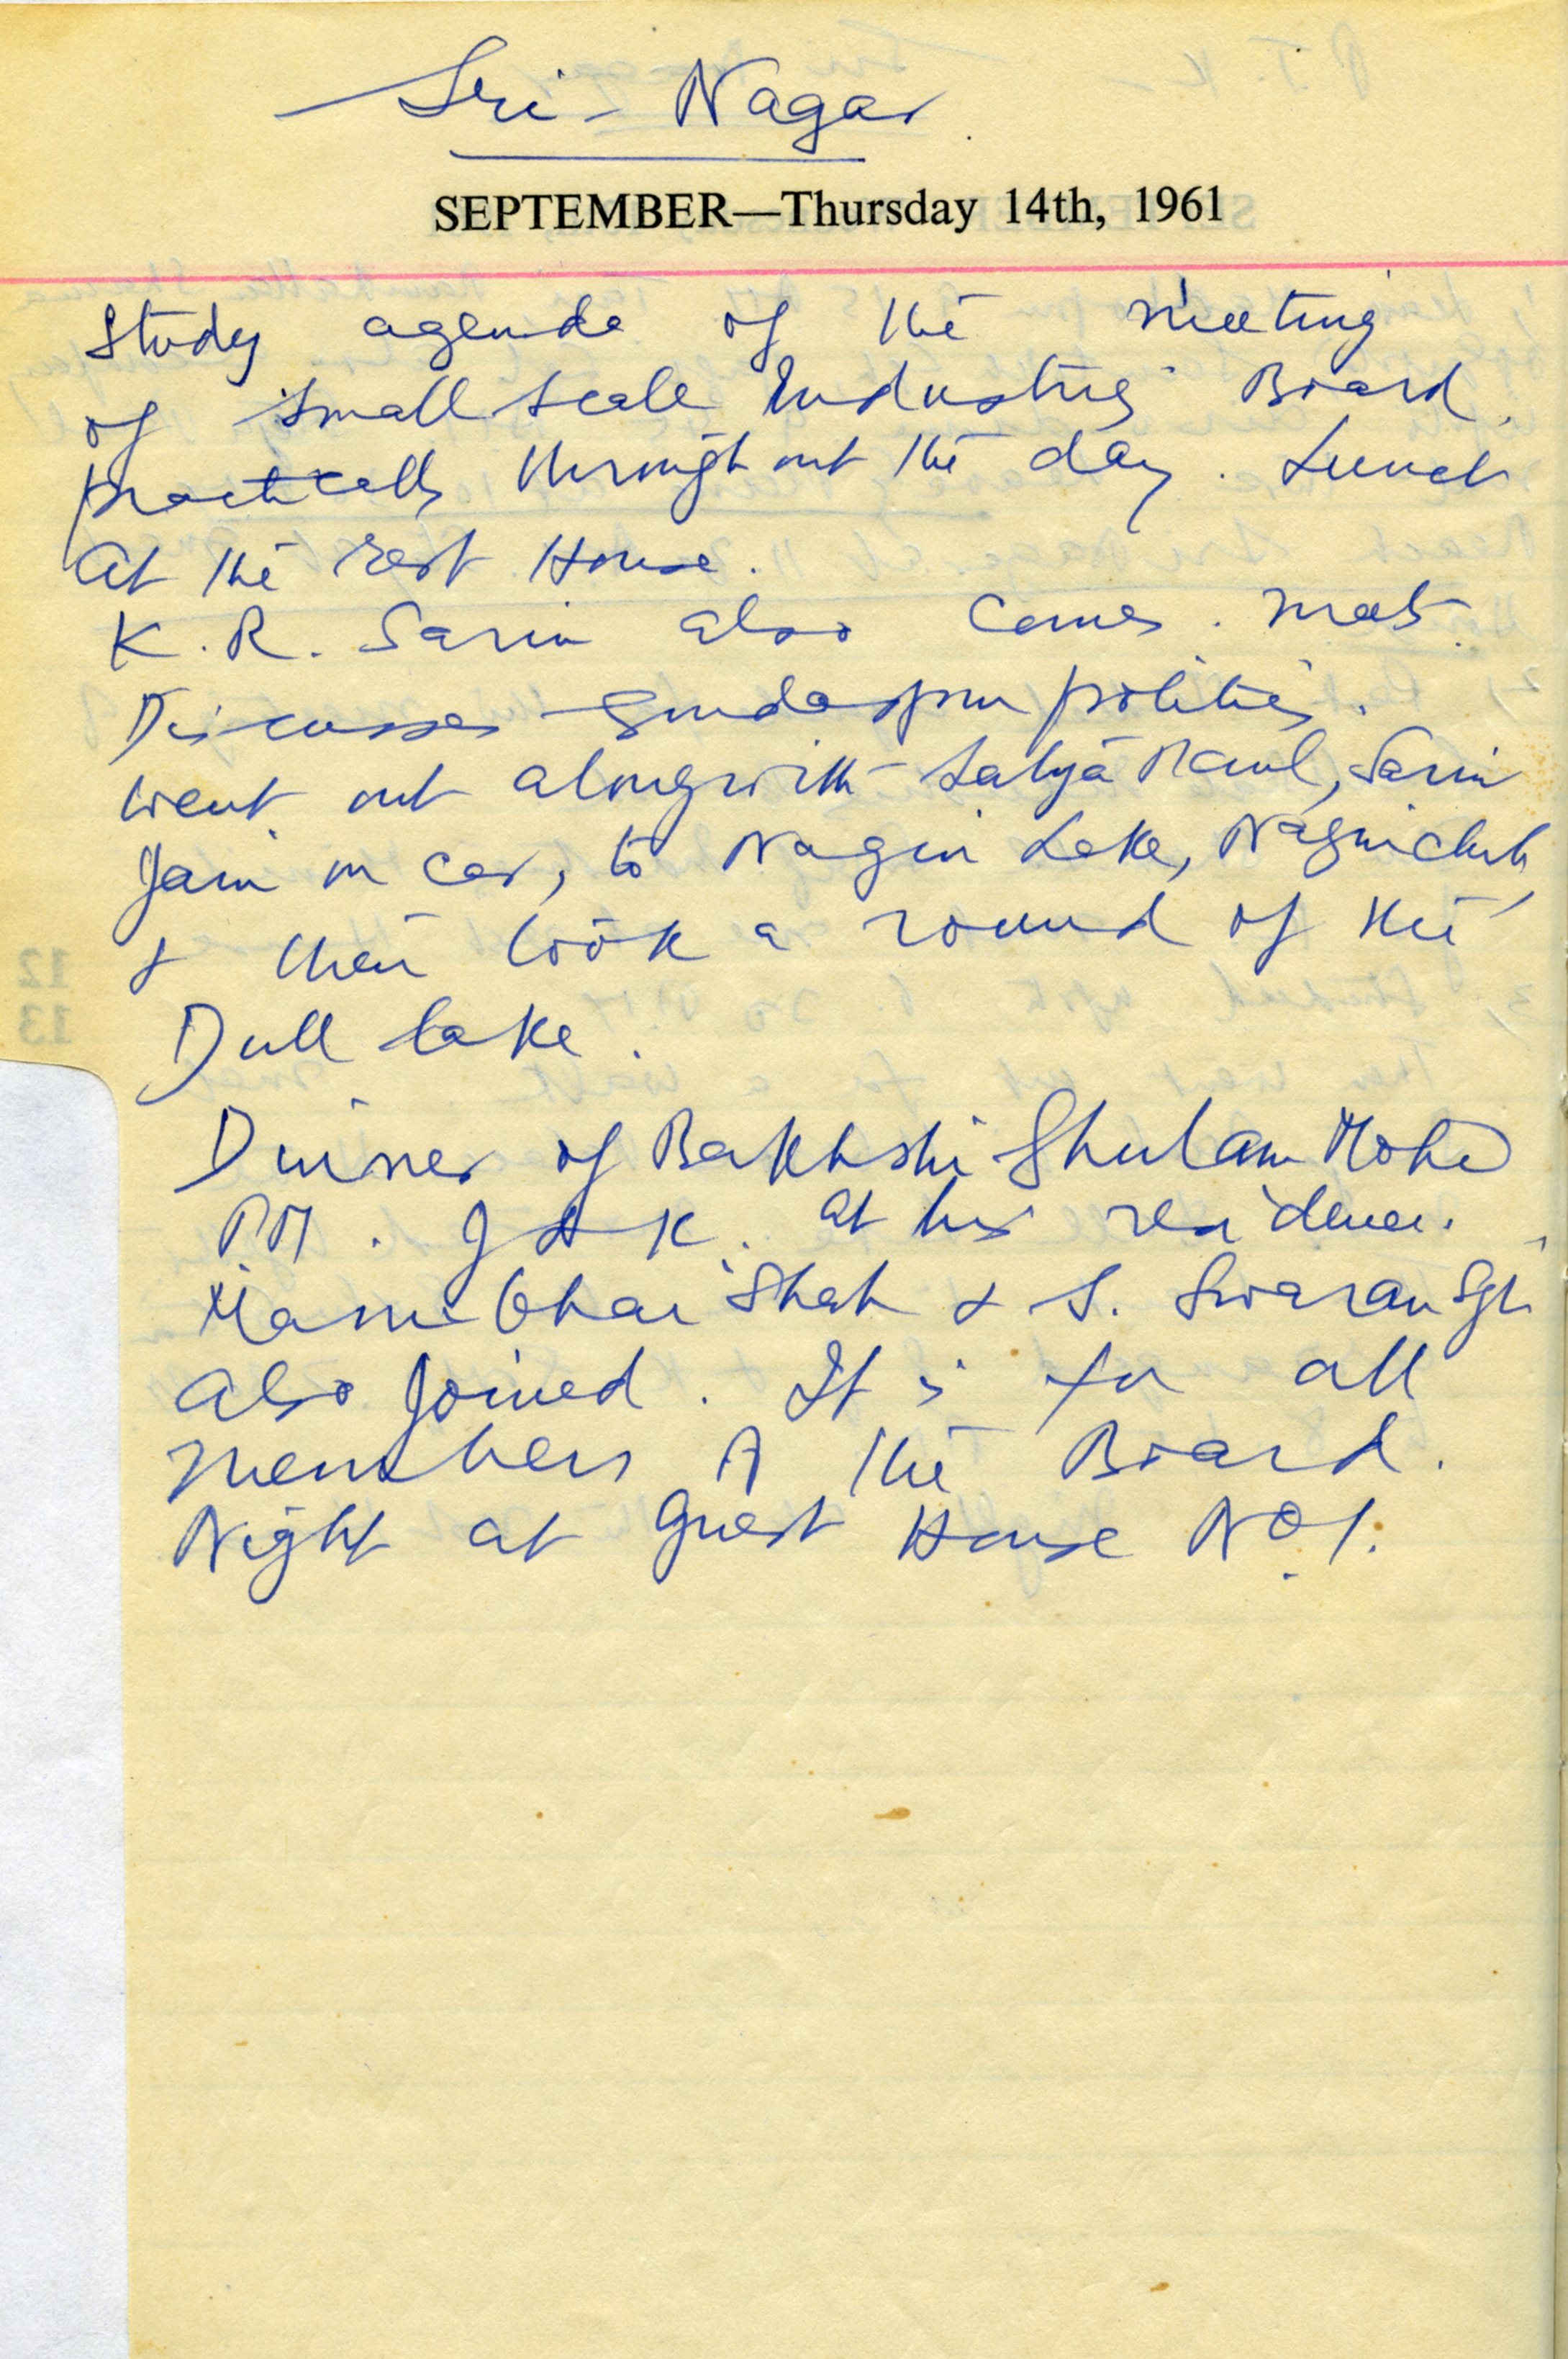 Sri - Nagar
SEPTEMBER—Thursday 14th, 1961
Study agenda of the meeting
of Small Scale Industries Board.
practically throughout the day. Lunch
at the rest House.
K. R. Sarin also comes. meets.
Discusses Gurdaspur politics.
went out alongwith Satya Paul, Sarin
Jain in car, to Nagin Lake, Nagin club,
& then took a round of the
Dull lake.
Dinner of Bakhshi Ghulam Mohd
PM. J & K. at his residence.
Manubhai Shah & S. Swaran Sgh.
also joined. It is for all
members of the Board.
Night at Guest House No 1.